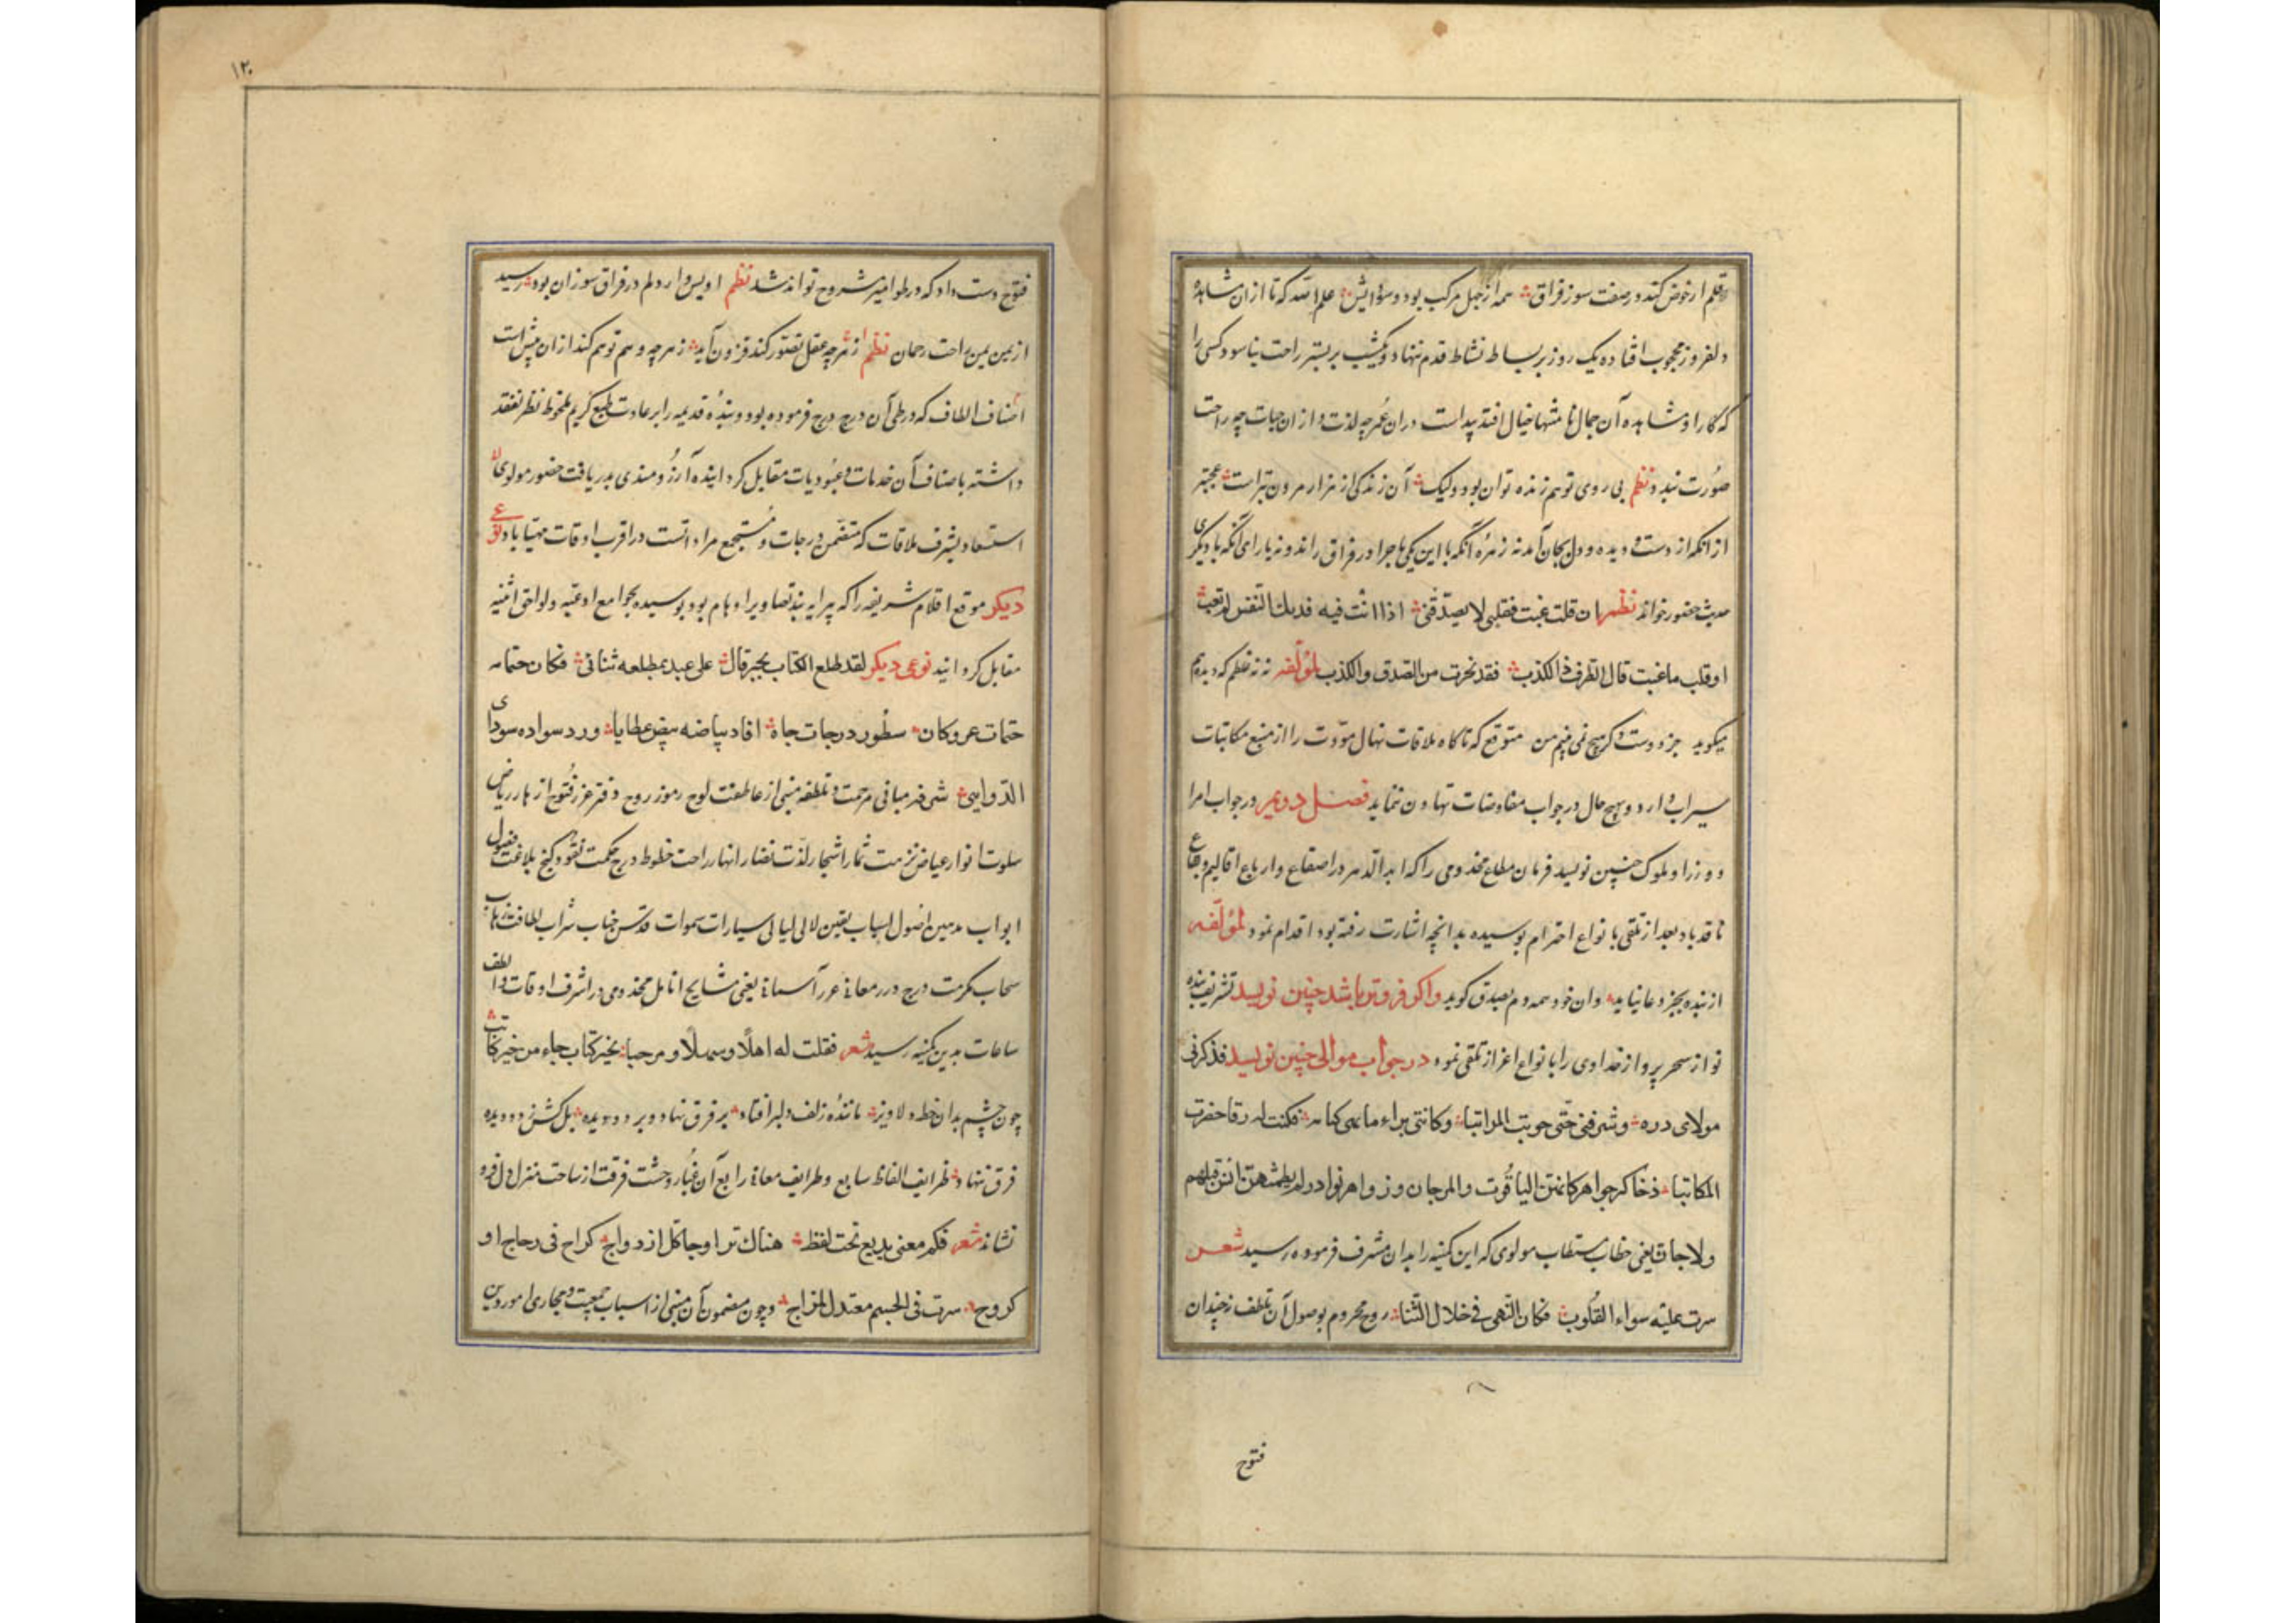 قلم ار خوض کند در صفت سوز فراق همه از جهل مرکب بود و سودایش علم الله که تا از ان مشاهده
دلفروز محجوب افتاده یک روز بر بساط نشاط قدم ننهاد و یکشب بر بستر راحت نیاسود کسی را
که کار او مشاهده آن جمال با خیال افتد پیداست در ان عمر چه لذت و از ان حیات چه راحت
صورت بندد نظم بی روی تو هم زنده توان بود ولیک آن زندگی از هزار مردن بتر است عجبتر
از انکه از دست دیده و دل بجان آمد نه زهره آنکه با این یکی ماجرا در فراق راند و نه یارای آنکه با دیگری
حدیث حضور خواند نظم ان قلت غبت فقلبی لا یصدقنی اذا انت فیه فدیك النفس لم تغب
او قلت ما غبت قال الطرف ذا الکذب فقد تحیرت من الصدق والکذب لمؤلفه نه نه غلطم که دیدیم
میکوید جز دوست دکر هیچ نمی بینم من متوقع که تا کاه ملاقات نهال مودت را از منبع مکاتبات
سیراب دارد و بهیچ حال در جواب مفاوضات تهاون ننماید فصل دویم در جواب امرا
و وزرا و ملوک چنین نویسد فرمان مطاع مخدومی را که ابد الدهر در اصقاع و ارباع اقالیم و بقاع
نافذ باد بعد از تلقی با نواع احترام بوسیده بدانچه اشارت رفته بود اقدام نمود لمؤلفه
از بنده بجز دعا نیاید وان خود همه دم بصدق کوید واکر فروتر باشد چنین نویسد تشریف بنده
نواز سحر پرداز خداوی را با نواع اعزاز تلقی نموده در جواب موالی چنین نویسد فذکرنی
مولای دره وشرفنی حتی حویت المراتبا وکاتبنی فکنت له رقا
المکاتبا ذخا کر جواهر کانهن الیاقوت والمرجان و زواهر نوادر لم یطمثهن انس قبلهم
ولا جان یعنی خطاب مستطاب مولوی که این کمینه را بدان مشرف فرموده رسید شعر
سرت علیه سواء القلوب فکان النهی فی خلال الثنا روح محروم بوصول آن تلطف نچندان
فتوح
۱۲۰
فتوح دست داد که در طوامیر مشروح تواند شد نظم اویس وار دلم در فراق سوزان بود رسید
از یمین یمن راحت رحمان نظم از هرچه عقل تصور کند فزون آید ز هرچه وهم توهم کند از ان پیش است
اصناف الطاف که در طی آن درج درج فرموده بود و بنده قدیمه را بر عادت طبع کریم ملحوظ نظر تفقد
داشته با صناف آن خدمات و عبودیات مقابل کردانیده آرزومندی بدریافت حضور مولوی
استسعاد بشرف ملاقات که متضمن درجات و مستجمع مراداتست در اقرب اوقات مهیا باد نوع
دیکر موقع اقلام شریفه را که پیرایه بند تصاویر اوهام بود بوسیده بجوامع ادعیه و لواحق اثنیه
مقابل کردانید نوعی دیکر لقد طلع الکتاب بخیر قال علی عبد بمطلعه ثنانی فکان ختامه
ختمات عمر وکان سطور درجات جاه افاد بیاضه بیض عطایا ورد سواده سودای
الدواهی شرفه مبانی مرحمت و تلطفه منبی از عاطفت لوح رموز روح دفتر غرر فتوح ازهار ریاض
سلوت انوار عیاض نزهت ثمار اشجار لذت انهار راحت خطوط درج حکمت نقود کنج بلاغت فصول
ابواب اصول اسباب یقین لالی لیالی سیارات سموات قدس شراب لطافت
سحاب مکرمت درج درر معانی غرر آسمان یعنی مشایح انامل مخدومی در اشرف اوقات و الطف
ساعات بدین کمینه رسید شعر فقلت له اهلا وسهلا ومرحبا بخیر کتاب جاء من خیر کاتب
چون چشم بدان خط دلاویز ماننده زلف دلبر افتاد بر فرق نهاد و بر دو دیده بل کش ز دو دیده
فرق ننهاد ظرایف الفاظ و طرایف معانی رابع آن غبار وحشت فرقت از ساحت منزل دل
نشاند شعر فکم معنی بدیع تحت لفظ هناك تراوجا کل ازدواج کراح فی زجاج او
کروح سرت فی الجسم معتدل المزاج و چون مضمون آن منبی از اسباب جمعیت و مجاری امور دین